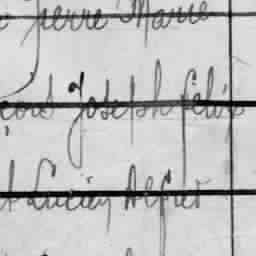 Pierre Marie
Joseph Félix
Lucien Alfred